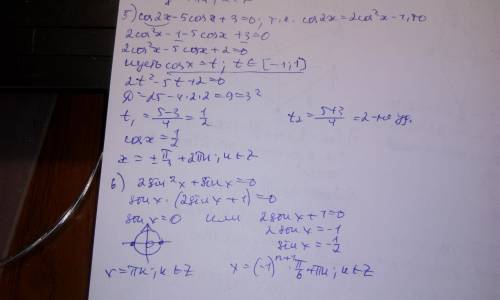 5) cos2x-5cosx+3=0; т.к. cos2x=2cos²x-1, то
2cos²x-1-5cosx+3=0
2cos²x-5cosx+2=0
пусть cosx=t; t∈[-1;1]
2t²-5t+2=0
D=25-4·2·2=9=3²
t₁=(5-3)/4=1/2 t₂=(5+3)/4=2-не уд.
cosx=1/2
x=±π/3+2πn; n∈Z
6) 2sin²x+sinx=0
sinx·(2sinx+1)=0
sinx=0 или 2sinx+1=0
2sinx=-1
sinx=-1/2
x=πn; n∈Z x=(-1)ⁿ⁺¹·π/6+πn; n∈Z